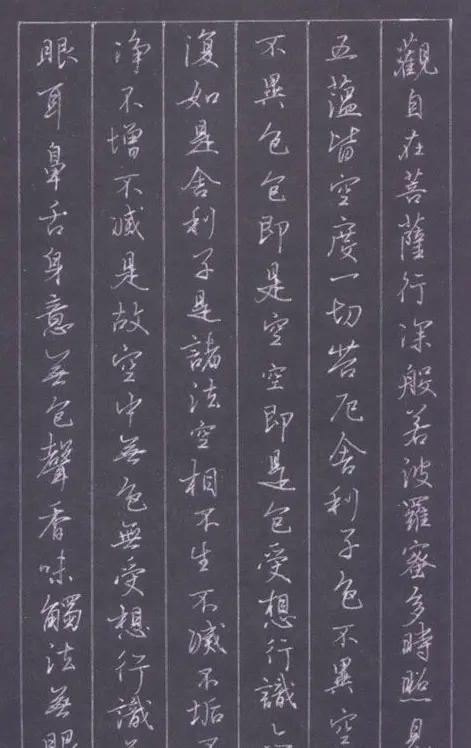 觀自在菩薩行深般若波羅蜜多時照見
五蘊皆空度一切苦厄舍利子色不異空
不異色色即是空空即是色受想行識亦
復如是舍利子是諸法空相不生不滅不垢不
淨不增不減是故空中無色無受想行識無
眼耳鼻舌身意無色聲香味觸法無眼